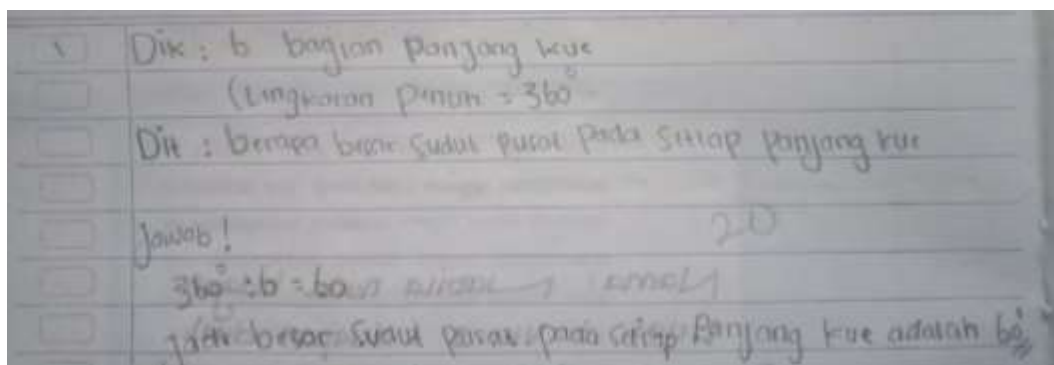 1 Dik : 6 bagian panjang kue
(Lingkaran penuh = 360°
Dit : berapa besar sudut pusat pada setiap panjang kue
20
Jawab !
360° : 6 = 60
Jadi besar sudut pusat pada setiap panjang kue adalah 60°